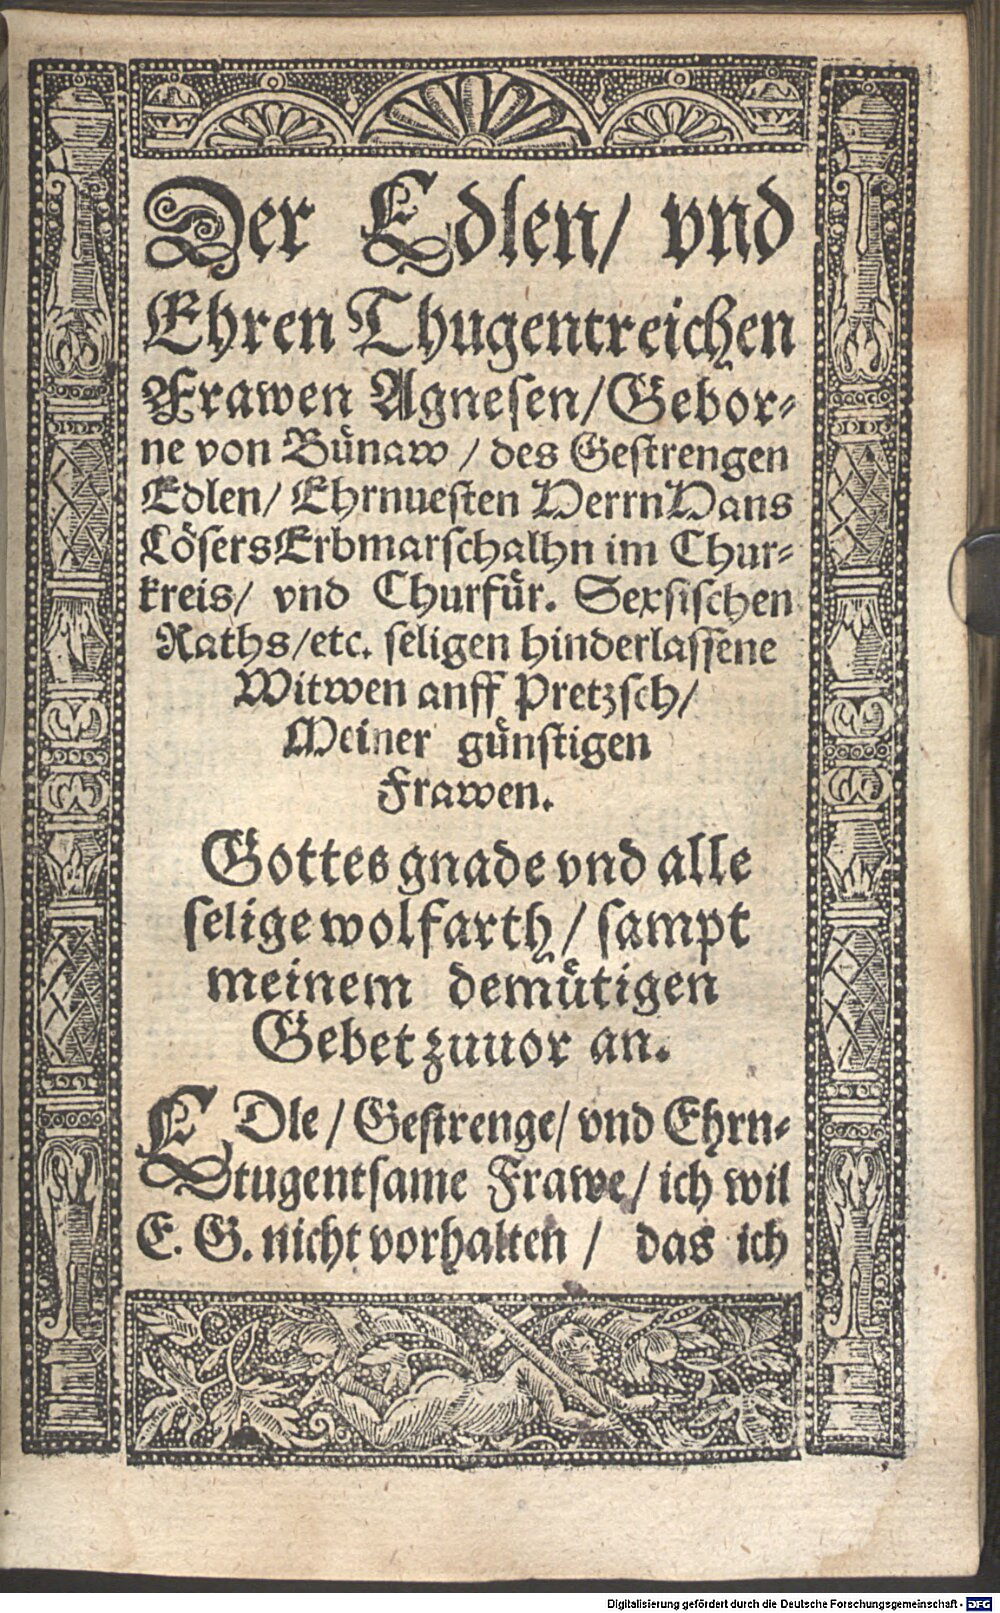 Der Edlen/ vnd
Ehren Thugentreichen
Frawen Agnesen/Gebor-
ne von Bünaw / des Gestrengen
Edlen/ Ehrnuesten Herrn Hans
Lösers Erbmarschalhn im Chur-
kreis/ vnd Churfür. Sexsischen
Raths/etc. seligen hinderlassene
Witwen anff Pretzsch/
Meiner günstigen
Frawen.
Gottes gnade vnd alle
selige wolfarth/ sampt
meinem demütigen
Gebet zuuor an.
EDle/ Gestrenge/ vnd Ehrn-
tugentsame Frawe/ ich wil
E. G. nicht vorhalten/ das ich
Digitalisierung gefördert durch die Deutsche Forschungsgemeinschaft - DFG